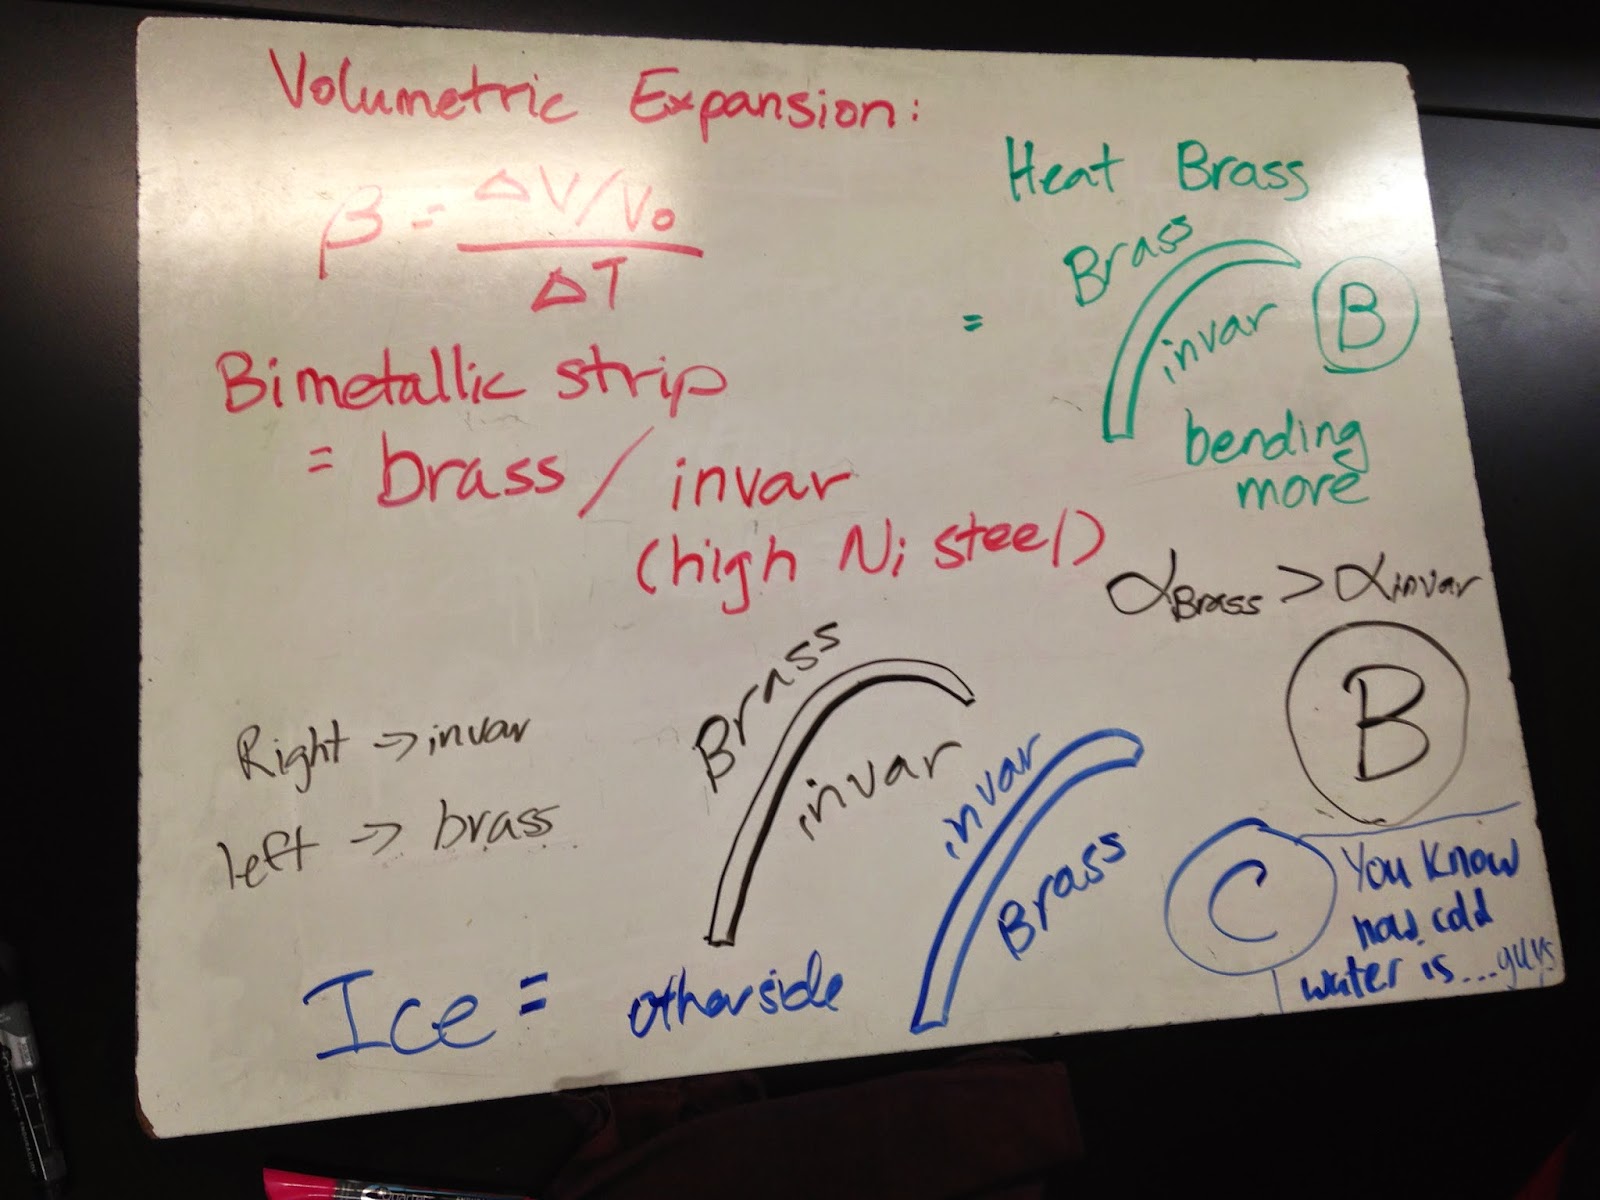 Volumetric Expansion:
β = ΔV/V₀
ΔT
Bimetallic strip
= brass / invar
(high Ni steel)
Heat Brass
=
Brass
invar
B
bending
more
αBrass > αinvar
B
Right → invar
left → brass
Brass
invar
Ice = otherside
invar
Brass
C
You know
how cold
water is...guys
Quartet